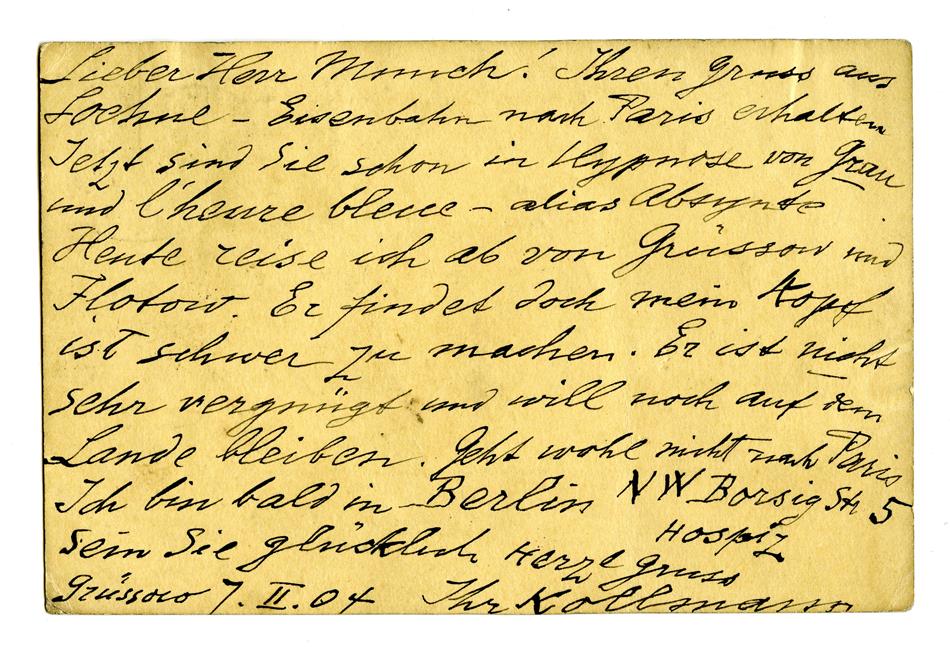 Lieber Herr Munch! Ihren Gruss aus
Lochne – Eisenbahn nach Paris erhalten
Jetzt sind Sie schon in Hypnose von Grau
und l'heure bleue – alias Absynte
Heute reise ich ab von Grüssow und
Flotow. Er findet doch mein Kopf
ist schwer zu machen. Er ist nicht
sehr vergnügt und will noch auf dem
Lande bleiben. Geht wohl nicht nach Paris
Ich bin bald in Berlin NW Borsig Str 5
Hospiz
sein Sie glücklich Herzl Gruss
Grüssow 7. II. 04 Ihr Kollmann